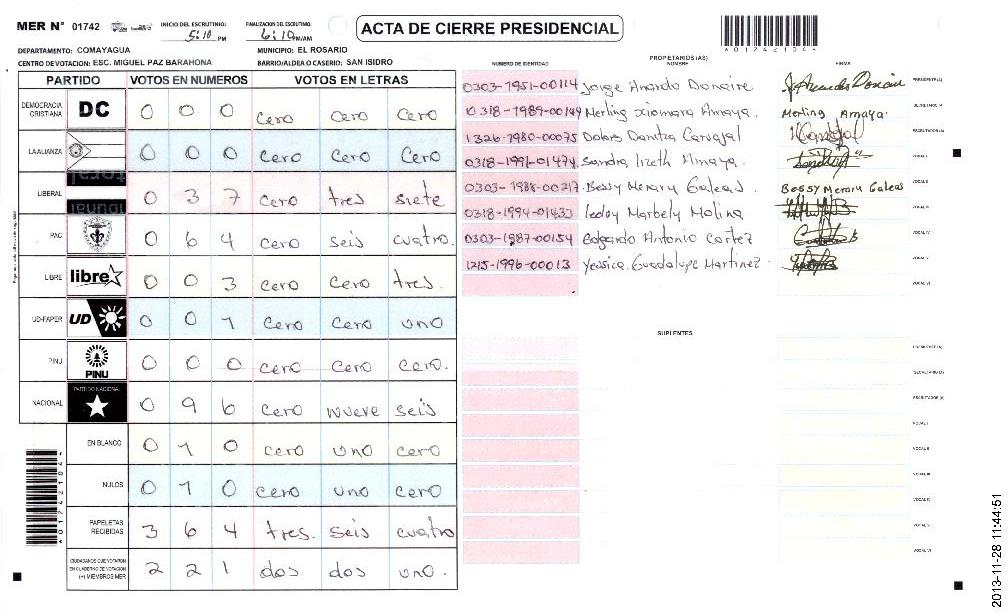 MER N° 01742 INICIO DEL ESCRUTINIO: 5:10 PM FINALIZACION DEL ESCRUTINIO: 6:10 PM/AM
ACTA DE CIERRE PRESIDENCIAL
DEPARTAMENTO: COMAYAGUA MUNICIPIO: EL ROSARIO
CENTRO DE VOTACION: ESC. MIGUEL PAZ BARAHONA BARRIO/ALDEA O CASERIO: SAN ISIDRO
PARTIDO VOTOS EN NUMEROS VOTOS EN LETRAS
DEMOCRACIA CRISTIANA DC 0 0 0 cero cero cero
LA ALIANZA 0 0 0 cero cero cero
LIBERAL 0 3 7 cero tres siete
PAC 0 6 4 cero seis cuatro.
LIBRE libre 0 0 3 cero cero tres.
UD-FAPER UD 0 0 1 cero cero uno
PINU PINU 0 0 0 cero cero cero.
NACIONAL PARTIDO NACIONAL 0 9 6 cero nueve seis
EN BLANCO 0 1 0 cero uno cero
NULOS 0 1 0 cero uno cero
PAPELETAS RECIBIDAS 3 6 4 tres. seis cuatro
CIUDADANOS QUE VOTARON EN CUADERNO DE VOTACION (+) MIEMBROS MER 2 2 1 dos dos uno.
PROPIETARIOS (AS)
NUMERO DE IDENTIDAD NOMBRE FIRMA
0303-1951-00114 Jorge Anardo Donaire PRESIDENTE (A)
0318-1989-00149 Merling xiomara Amaya. Merling Amaya. SECRETARIO (A)
1326-1980-00075 Dolors Danitza Carvajal ESCRUTADOR (A)
0318-1991-01474 Sandra lizeth Amaya. VOCAL I
0303-1988-00217 Bessy Merary Galeas. Bessy Merary Galeas VOCAL II
0318-1994-01433 Marbely Molina VOCAL III
0303-1987-00154 Edgardo Antonio Cortez VOCAL IV
1215-1996-00013 Yessica Guadalupe Martinez. VOCAL V
VOCAL VI
SUPLENTES
PRESIDENTE (A)
SECRETARIO (A)
ESCRUTADOR (A)
VOCAL I
VOCAL II
VOCAL III
VOCAL IV
VOCAL V
VOCAL VI
2013-11-28 11:44:51